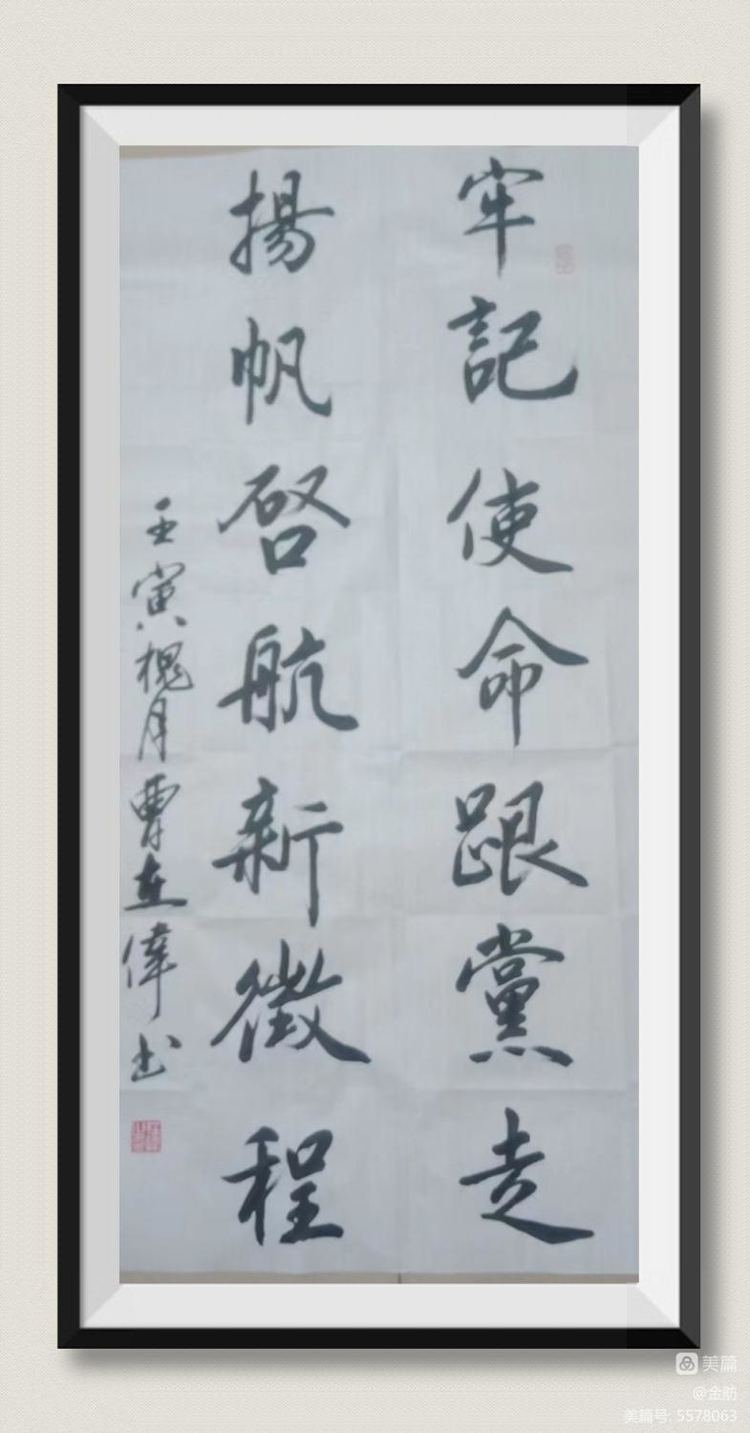 牢記使命跟黨走
揚帆啓航新徵程
壬寅槐月曹在偉书
美篇
@金舫
美篇号: 5578063